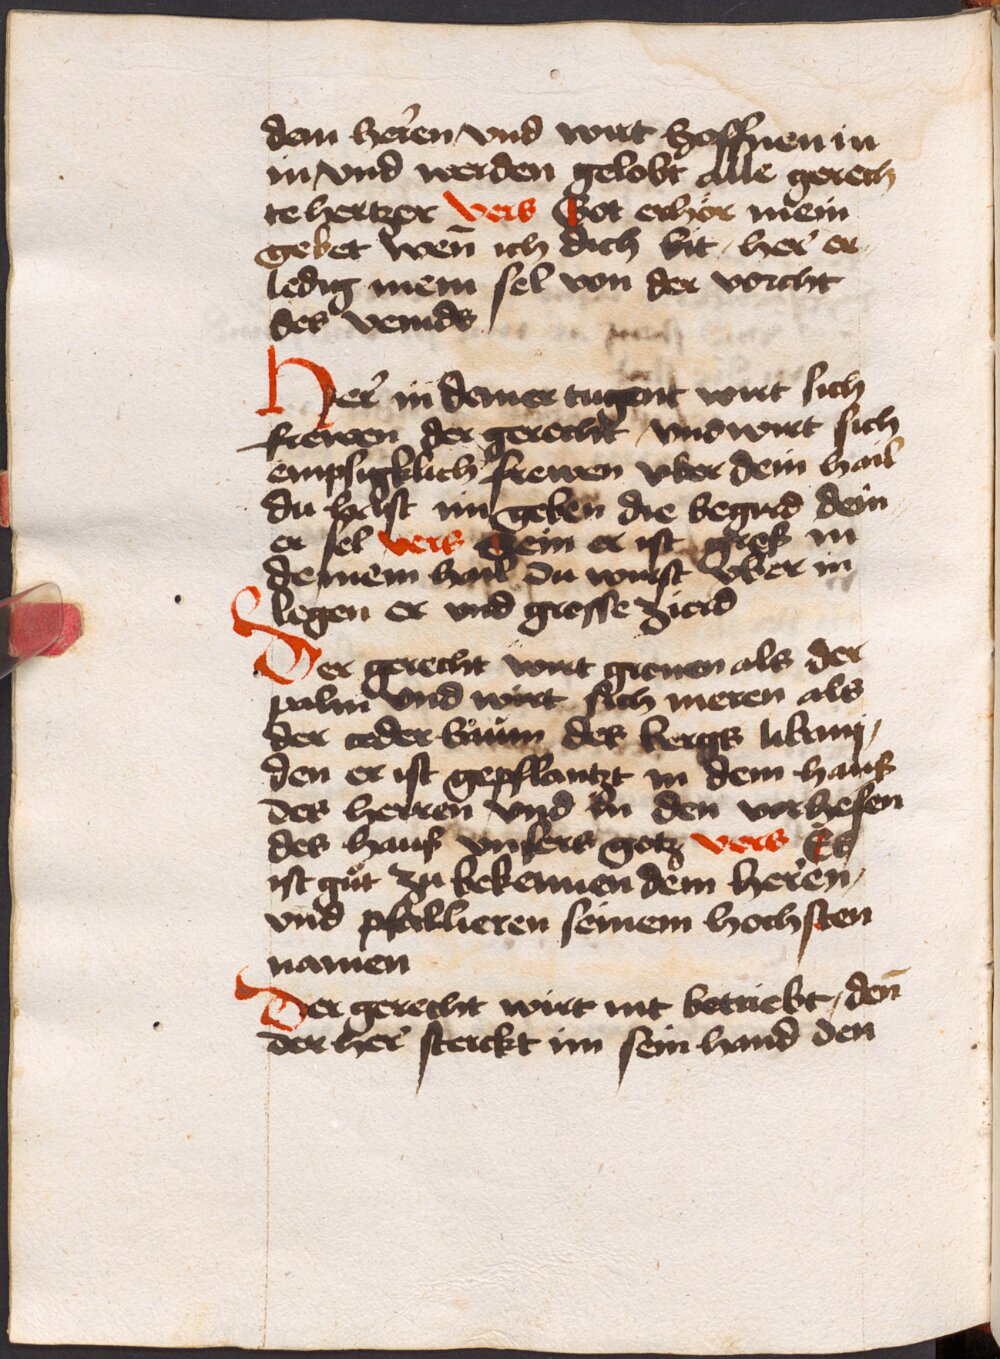 dem heren / vnd wirt hoffnen in
in / vnd werden gelobt alle gerech
te hertzer vers Got erhör mein
gebet wen̄ ich dich bit / her er
ledig mein sel von der vorcht
des veinds
Her in deiner tugent wirt sich
frewen der gerecht / vnd wirt sich
empsigklich frewen vber dein hail
du hast im geben die begird sein
er sel vers Sein er ist groß in
deinem hail du wirst vber in
legen er vnd grosse zierd
Der gerecht wirt grenen als der
palm vnd wirt sich meren als
der ceder baum des bergs libani /
den er ist gepflantzt in dem hauß
des herren vnd in den vorhefen
des hauß vnsers gotz vers Es
ist güt zu bekennen dem heren /
vnd psallieren seinem hochsten
namen
Der gerecht wirt nit betriebt / den̄
der her sterckt im sein hand den